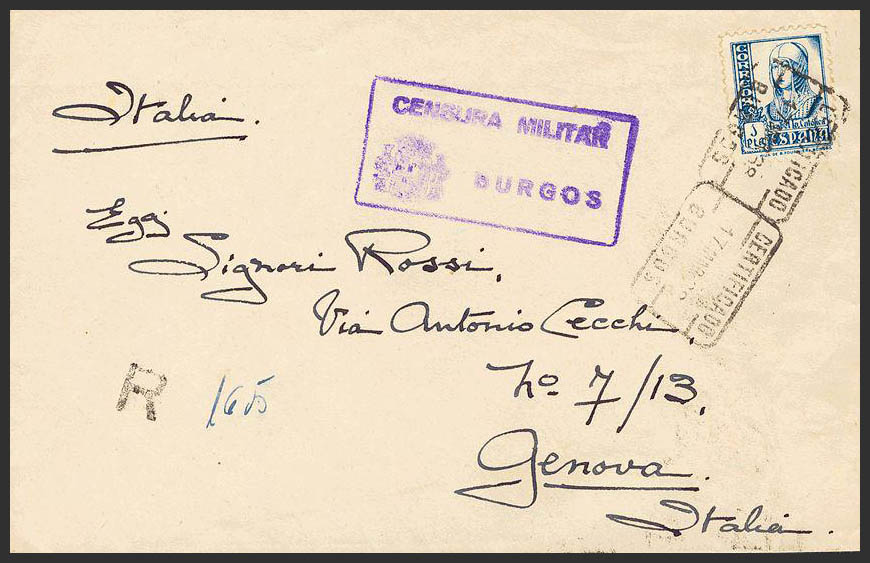 Italia.
CENSURA MILITAR
BURGOS
CORREOS
Isabel la Católica
1 PTA
ESPAÑA
CERTIFICADO
BURGOS
CERTIFICADO
BURGOS
Egg.
Signori Rossi,
Via Antonio Cecchi,
No 7/13,
Genova.
Italia.
R
1655